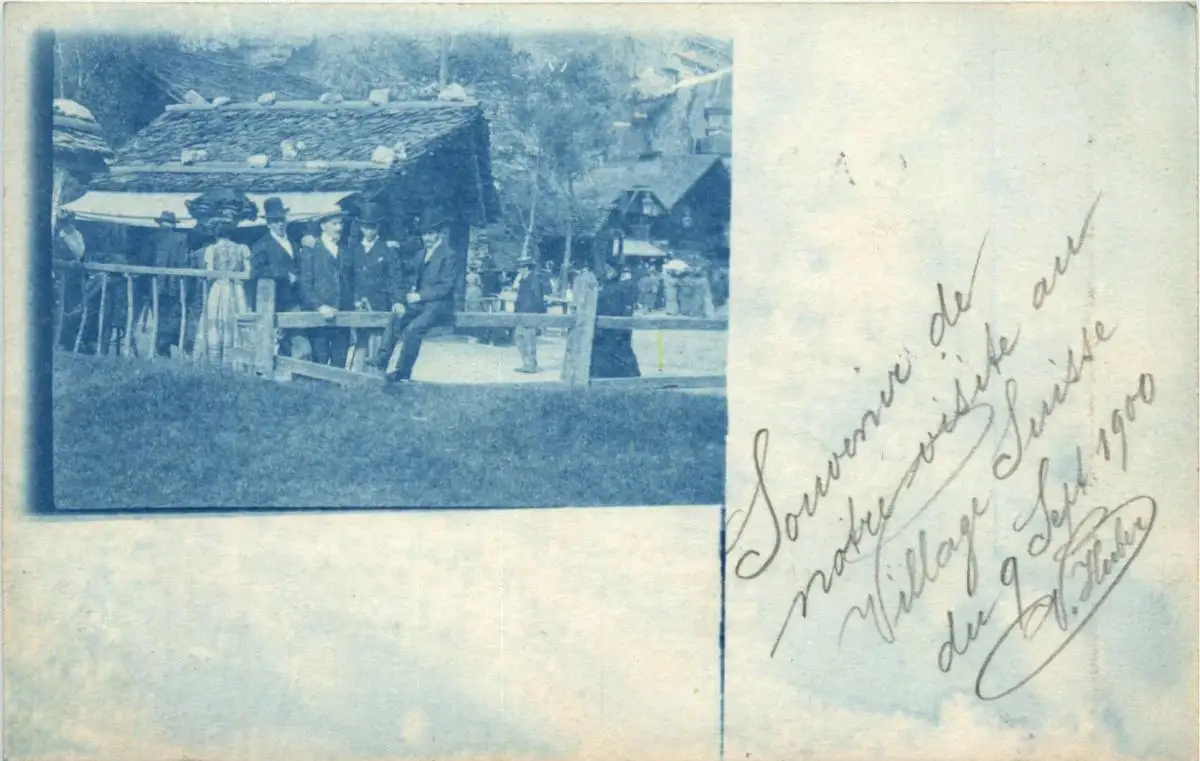 Souvenir de
notre visite au
Village Suisse
du 9 Sept. 1900
V. Huber